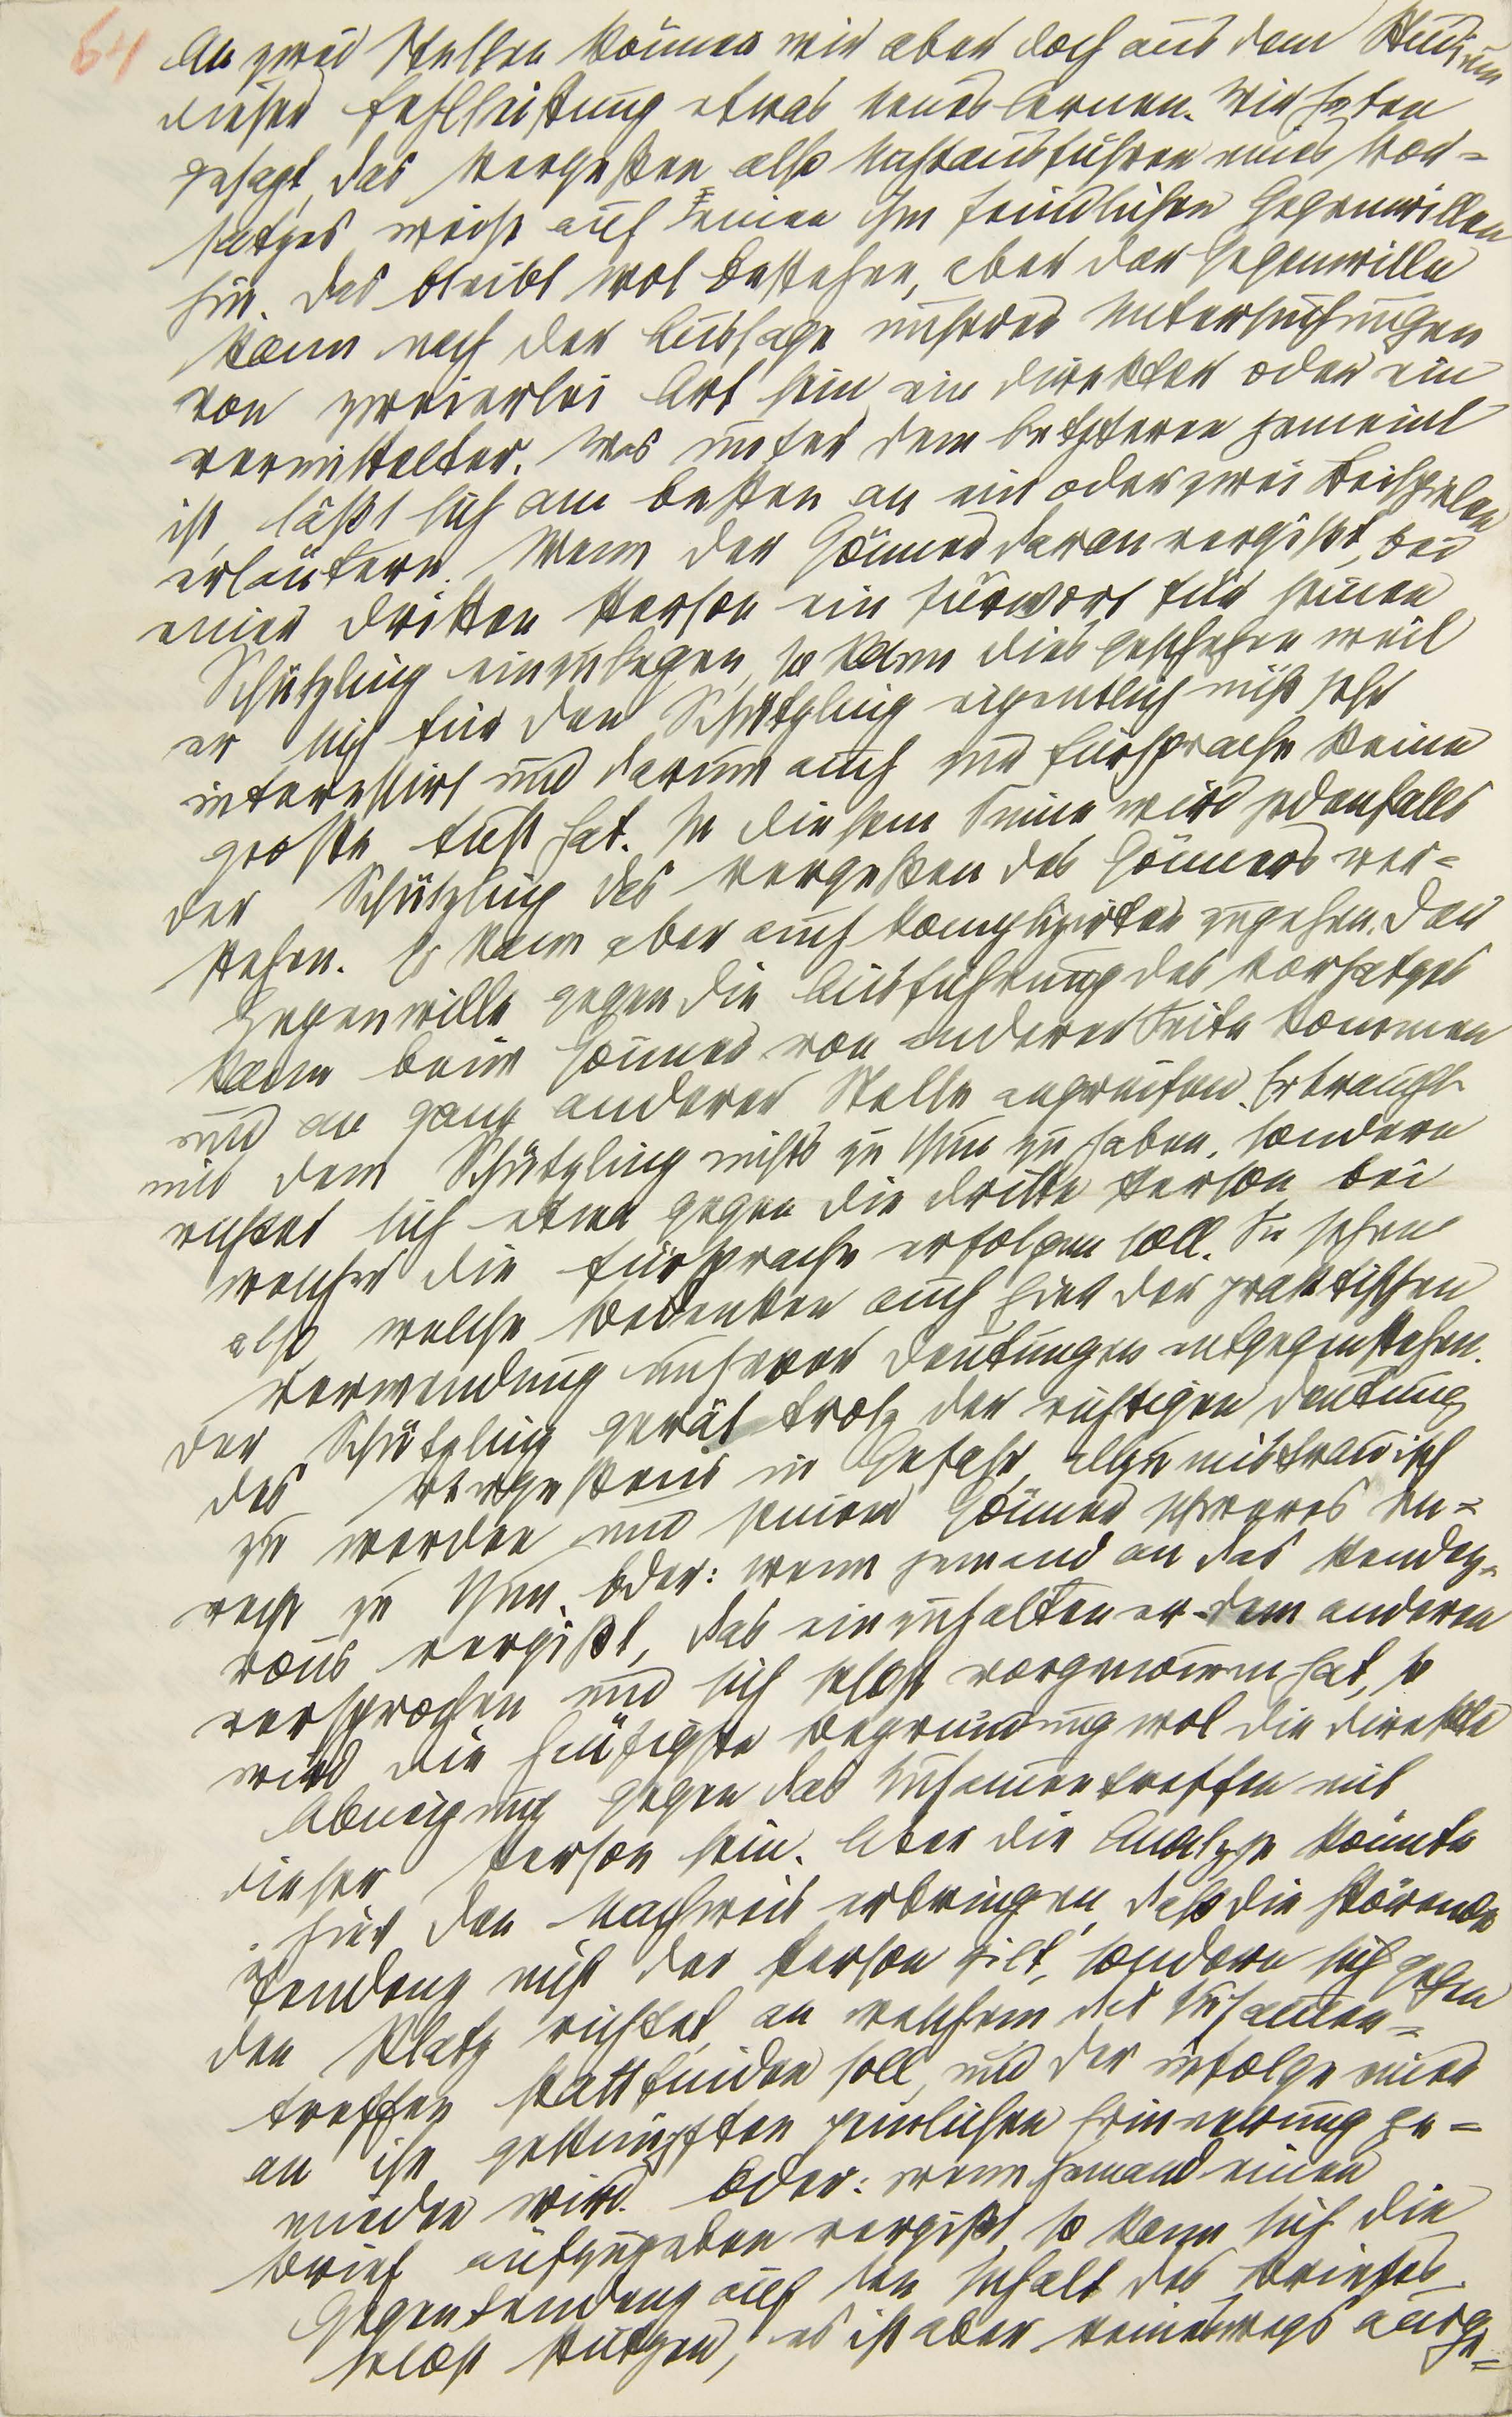 64
An zwei Stellen können wir aber doch aus dem Studium
dieser Fehlleistung etwas neues lernen. Wir haben
gesagt, das Vergessen also Nichtausführen eines Vor-
satzes weist auf einen ihm feindlichen Gegenwillen
hin. Das bleibt wol bestehen, aber der Gegenwille
kann nach der Aussage unserer Untersuchungen
von zweierlei Art sein ein direkter oder ein
vermittelter. Was unter dem letzteren gemeint
ist, läßt sich am besten an ein oder zwei Beispielen
erläutern. Wenn der Gönner daran vergißt, bei
einer dritten Person ein Fürwort für seinen
Schützling einzulegen, so kann dies geschehen weil
er sich für den Schützling eigentlich nicht sehr
interessirt und darum auch zur Fürsprache keine
große Lust hat. In diesem Sinne wird jedenfalls
der Schützling das Vergessen des Gönners ver-
stehen. Es kann aber auch komplizirter zugehen. Der
Gegenwille gegen die Ausführung des Vorsatzes
kann beim Gönner von anderer Seite kommen
und an ganz anderer Stelle angreifen. Er braucht
mit dem Schützling nichts zu thun zu haben, sondern
richtet sich etwa gegen die dritte Person bei
welcher die Fürsprache erfolgen soll. Sie sehen
also welche Bedenken auch hier der praktischen
Verwendung unserer Deutungen entgegenstehen.
Der Schützling gerät trotz der richtigen Deutung
des Vergessens in Gefahr, allzu mistrauisch
zu werden und seinem Gönner schweres Un-
recht zu thun. Oder: wenn jemand an das Rendez-
vous vergißt, das einzuhalten er dem anderen
versprochen und sich selbst vorgenommen hat, so
wird die häufigste Begründung wol die direkte
Abneigung gegen das Zusammentreffen mit
dieser Person sein. Aber die Analyse könnte
hier den Nachweis erbringen, daß die störende
Tendenz nicht der Person gilt, sondern sich gegen
den Platz richtet, an welchem das Zusammen-
treffen stattfinden soll, und der infolge einer
an ihn geknüpften peinlichen Erinnerung ge-
mieden wird. Oder: wenn jemand einen
Brief aufzugeben vergißt, so kann sich die
Gegentendenz auf den Inhalt des Briefes
selbst stützen; es ist aber keineswegs ausge-